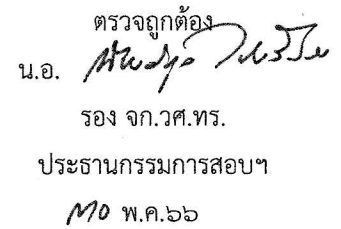 ตรวจถูกต้อง
น.อ.
รอง จก.วศ.ทร.
ประธานกรรมการสอบฯ
พ.ค.๖๖